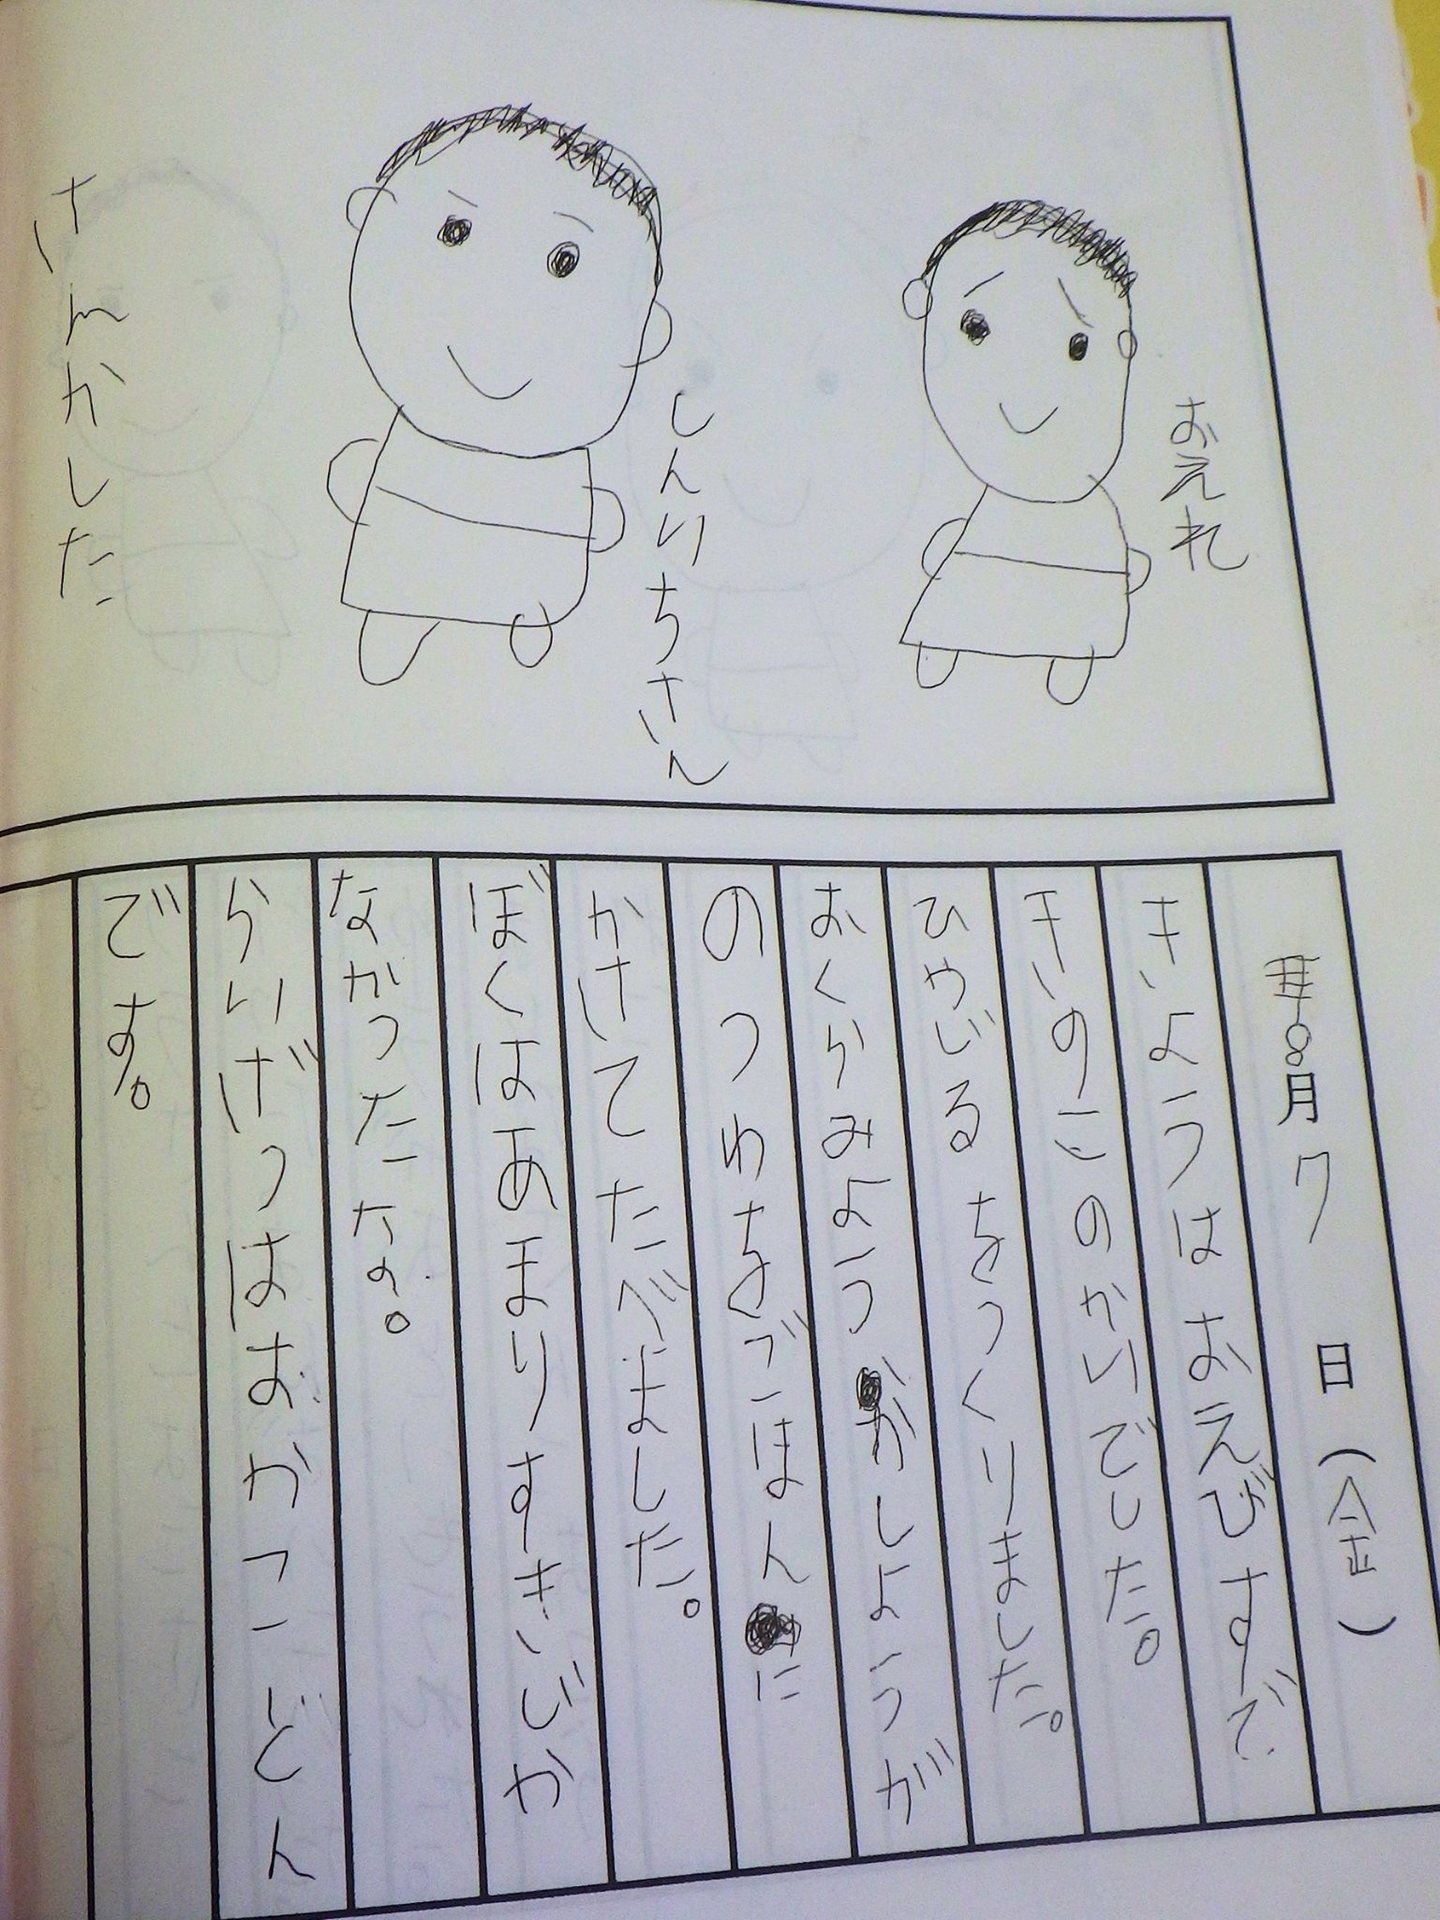 おえれ
しんいちさん
さんかした
8月7日(金)
きようはおえびすで
きいのこのかいでした。
ひやじるをつくりました。
おくらみようがしようが
のつわちをごはんに
かけてたべました。
ぼくはあまりすきじか
なかったな。
らいげつはおかつこどん
です。